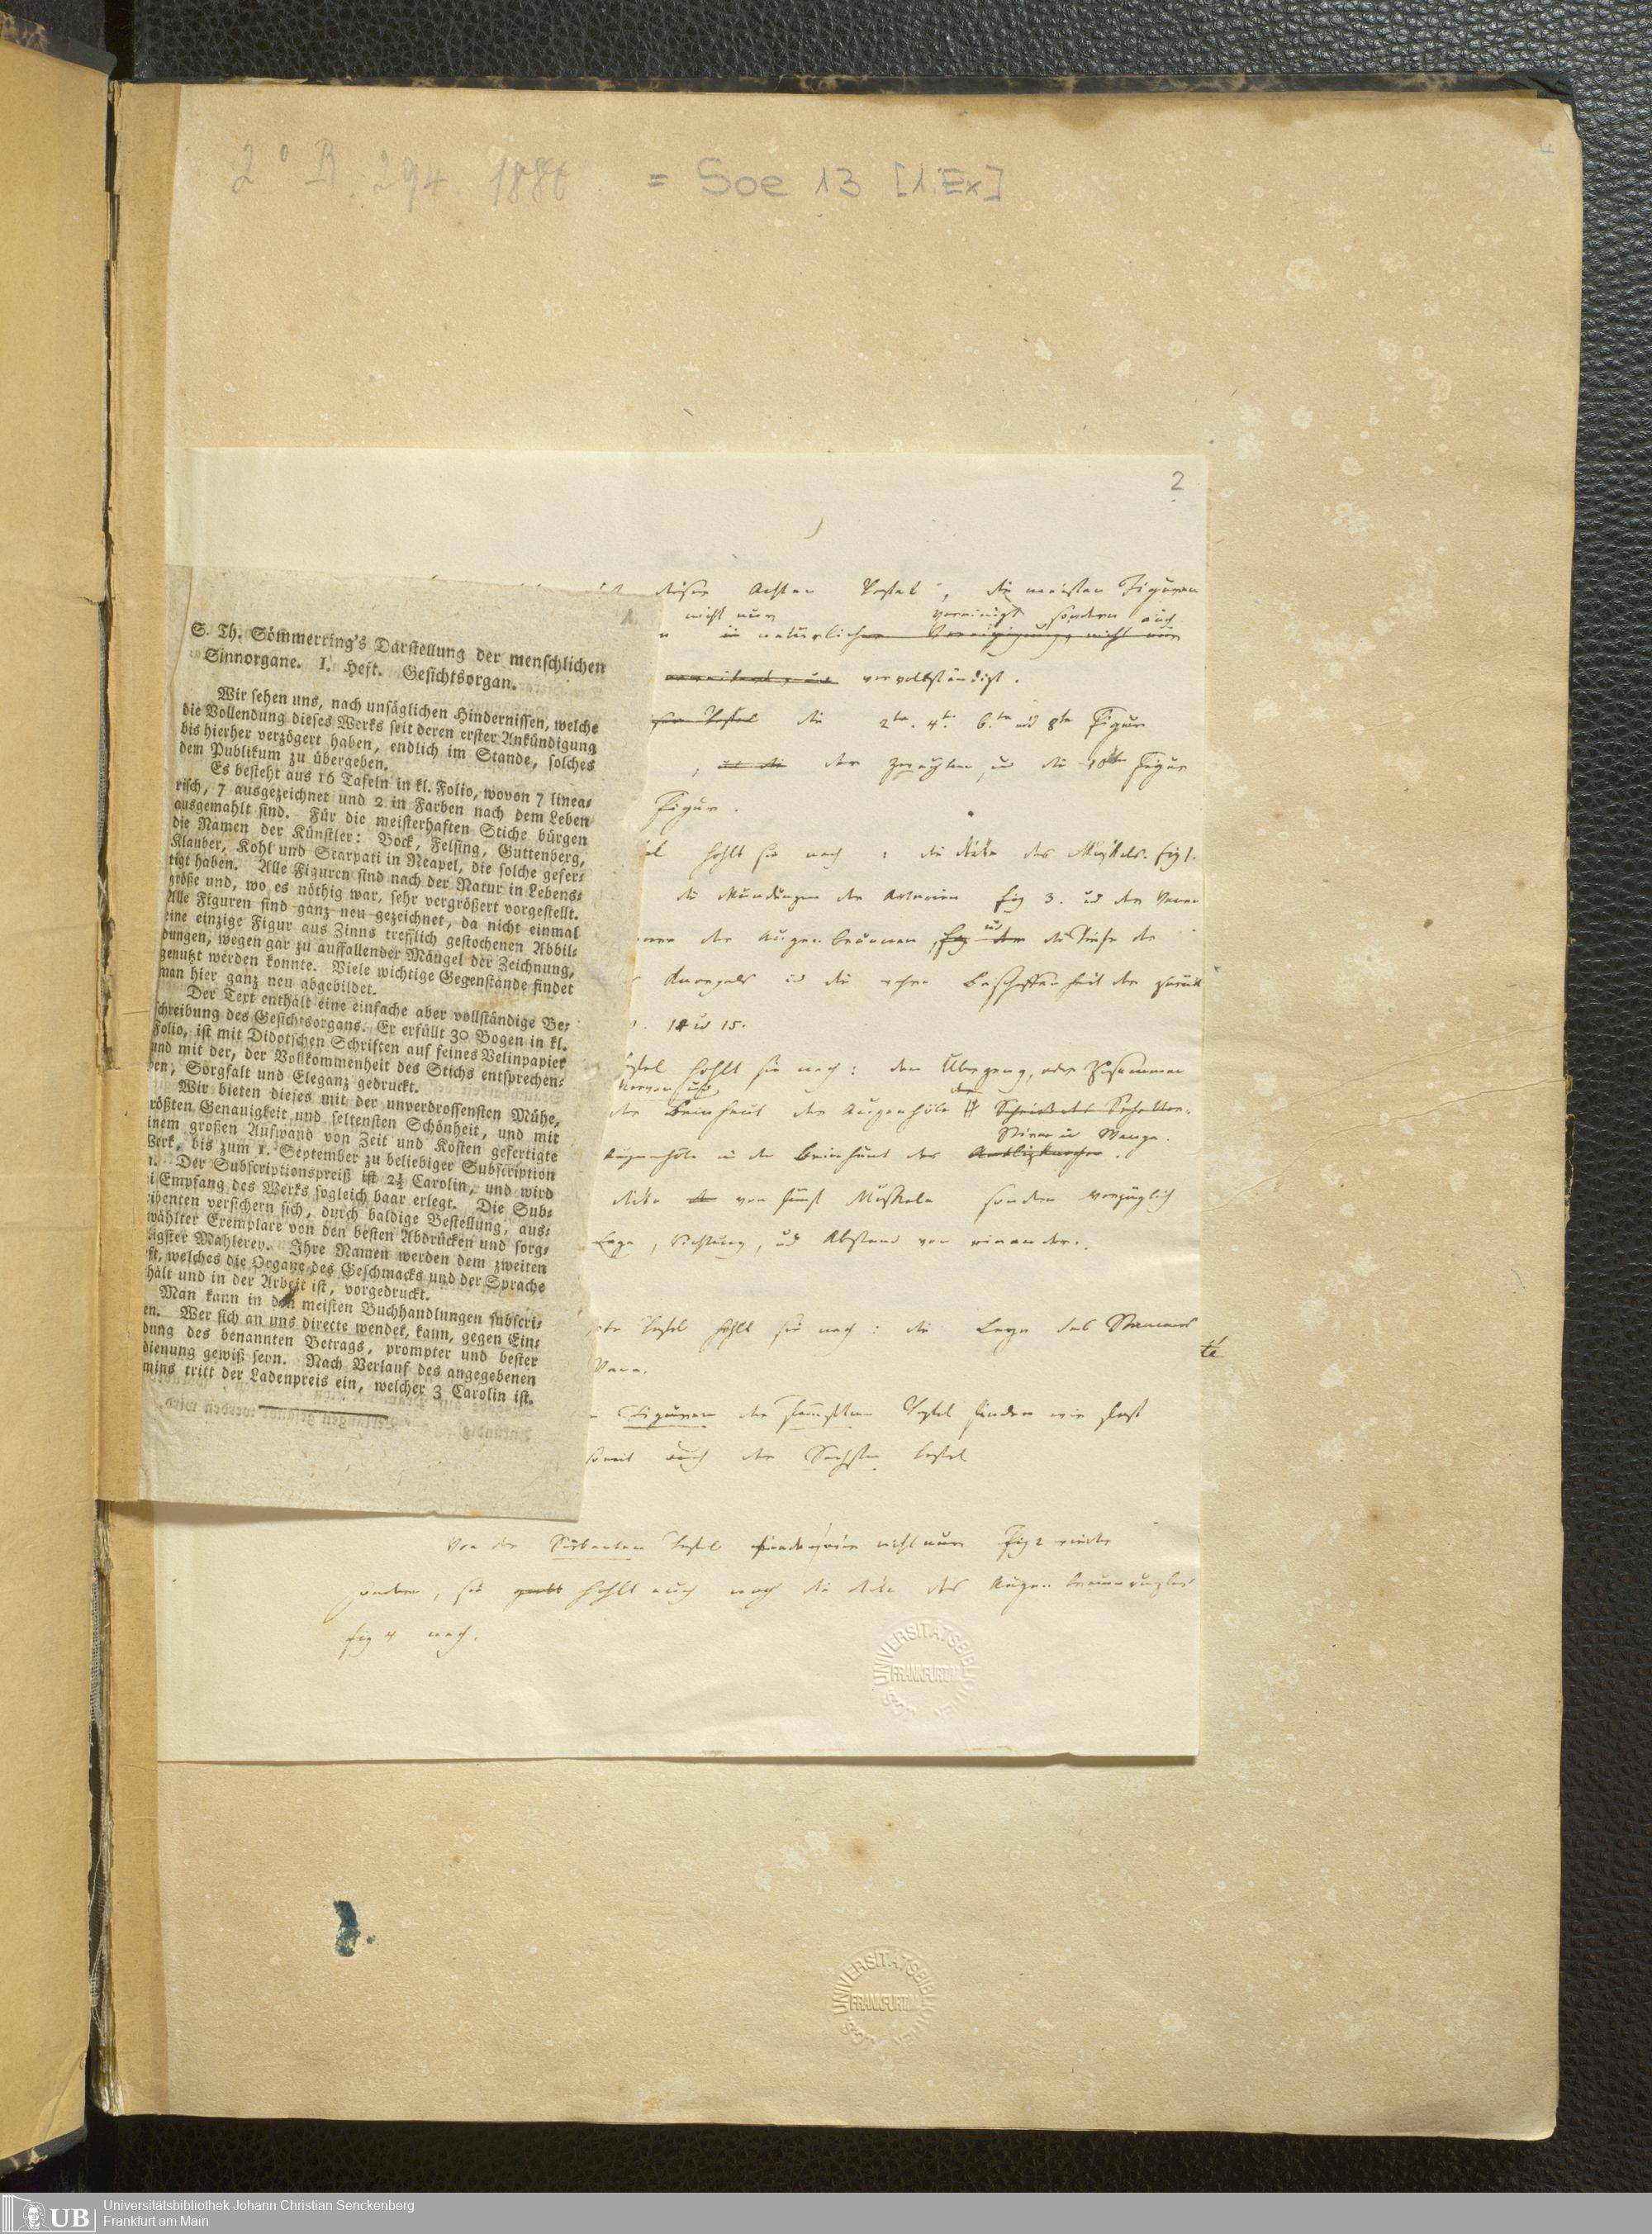 2° R. 294. 1886 = Soe 13 [1.Ex]
2
1.
S. Th. Sömmerring's Darſtellung der menſchlichen
Sinnorgane. I. Heft. Geſichtsorgan.
Wir ſehen uns, nach unſäglichen Hinderniſſen, welche
die Vollendung dieſes Werks ſeit deren erſter Ankündigung
bis hierher verzögert haben, endlich im Stande, ſolches
dem Publikum zu übergeben.
Es beſteht aus 16 Tafeln in kl. Folio, wovon 7 linea⸗
riſch, 7 ausgezeichnet und 2 in Farben nach dem Leben
ausgemahlt ſind. Für die meiſterhaften Stiche bürgen
die Namen der Künſtler: Bock, Felſing, Guttenberg,
Klauber, Kohl und Scarpati in Neapel, die ſolche gefer⸗
tigt haben. Alle Figuren ſind nach der Natur in Lebens⸗
größe und, wo es nöthig war, ſehr vergrößert vorgeſtellt.
Alle Figuren ſind ganz neu gezeichnet, da nicht einmal
eine einzige Figur aus Zinns trefflich geſtochenen Abbil⸗
dungen, wegen gar zu auffallender Mängel der Zeichnung,
genutzt werden konnte. Viele wichtige Gegenſtände findet
man hier ganz neu abgebildet.
Der Text enthält eine einfache aber vollſtändige Be⸗
ſchreibung des Geſichtsorgans. Er erfüllt 30 Bogen in kl.
Folio, iſt mit Didotſchen Schriften auf feines Velinpapier
und mit der, der Vollkommenheit des Stichs entſprechen⸗
den, Sorgfalt und Eleganz gedruckt.
Wir bieten dieſes mit der unverdroſſenſten Mühe,
rößten Genauigkeit und ſeltenſten Schönheit, und mit
inem großen Aufwand von Zeit und Koſten gefertigte
Werk, bis zum 1. September zu beliebiger Subſcription
n. Der Subſcriptionspreiß iſt 2½ Carolin, und wird
i Empfang des Werks ſogleich baar erlegt. Die Sub⸗
ribenten verſichern ſich, durch baldige Beſtellung, aus⸗
wählter Exemplare von den beſten Abdrücken und ſorg⸗
igſter Mahlerey. Ihre Namen werden dem zweiten
ft, welches die Organe des Geſchmacks und der Sprache
hält und in der Arbeit iſt, vorgedruckt.
Man kann in den meiſten Buchhandlungen ſubſcri⸗
en. Wer ſich an uns directe wendet, kann, gegen Ein⸗
dung des benannten Betrags, prompter und beſter
dienung gewiß ſeyn. Nach Verlauf des angegebenen
mins tritt der Ladenpreis ein, welcher 3 Carolin iſt.
dieser Achten Tafel, die meisten Figuren
nicht nur vereinigt sondern auch
in natürlicher Vereinigung nicht nur
vervollständigt.
die 2te. 4te. 6.te und 8te Figur
, der zweyten, und die 10te Figur
Figur.
hohlt sie nach: die Dicke des Muskels. fig 1.
die Mündungen der Arterien fig 3. und der Venen
der Augenbraunen, und die Tiefe der
Knorpels und die wahre Beschaffenheit der
14 und 15.
hohlt sie nach: den Übergang, oder Zusammen
der Beinhaut der Augenhöle
Stirn u Wange.
Augenhöle in der Beinhaut der Antlizknochen.
Dicke von fünf Muskeln sondern vorzüglich
Lage, Richtung, und Abstand von einander.
Tafel hohlt sie nach: die Lage des Stammes
te
Vene.
Figuren der fünften Tafel finden wir fast
somit auch der Sechsten Tafel
Von der Siebenten Tafel finden wir nicht nur Fig 2 wieder
sondern, sie hohlt auch noch die Dicke des Augenbraunrunzlers
fig 4 nach.
UNIVERSITÄTSBIBLIOTHEK
FRANKFURT/M
UNIVERSITÄTSBIBLIOTHEK
FRANKFURT/M
UB
Universitätsbibliothek Johann Christian Senckenberg
Frankfurt am Main